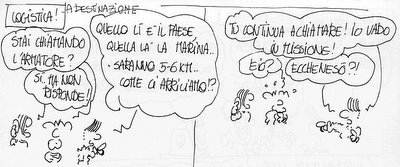 LOGISTICA!
A DESTINAZIONE
STAI CHIAMANDO
L'ARMATORE?
SI, MA NON
RISPONDE!
QUELLO LÌ È IL PAESE
QUELLA LA' LA MARINA..
SARANNO 5-6 KM..
COME CI ARRIVIAMO!?
TU CONTINUA A CHIAMARE! IO VADO
IN MISSIONE!
E IO?
ECCHENESÒ?!